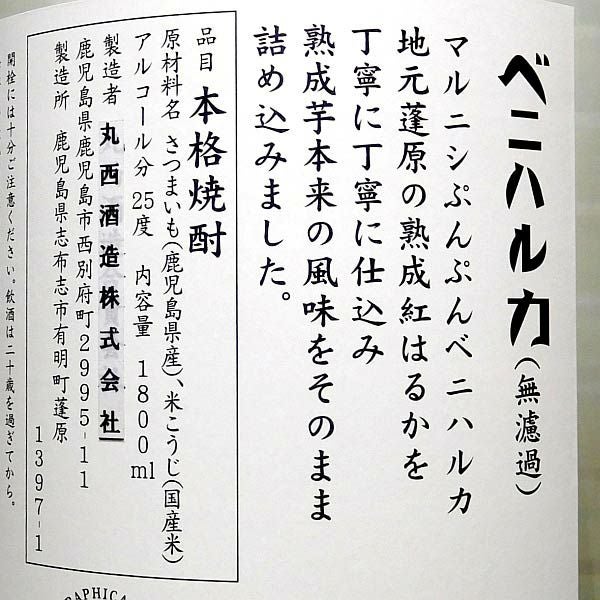 ベニハルカ(無濾過)
マルニシぷんぷんベニハルカ
地元蓬原の熟成紅はるかを
丁寧に丁寧に仕込み
熟成芋本来の風味をそのまま
詰め込みました。
品目 本格焼酎
原材料名 さつまいも(鹿児島県産)、米こうじ(国産米)
アルコール分 25度 内容量 1800ml
製造者 丸西酒造株式会社
鹿児島県鹿児島市西別府町2995-11
製造所 鹿児島県志布志市有明町蓬原
1397-1
開栓には十分ご注意ください。飲酒は二十歳を過ぎてから。
RAPHICA